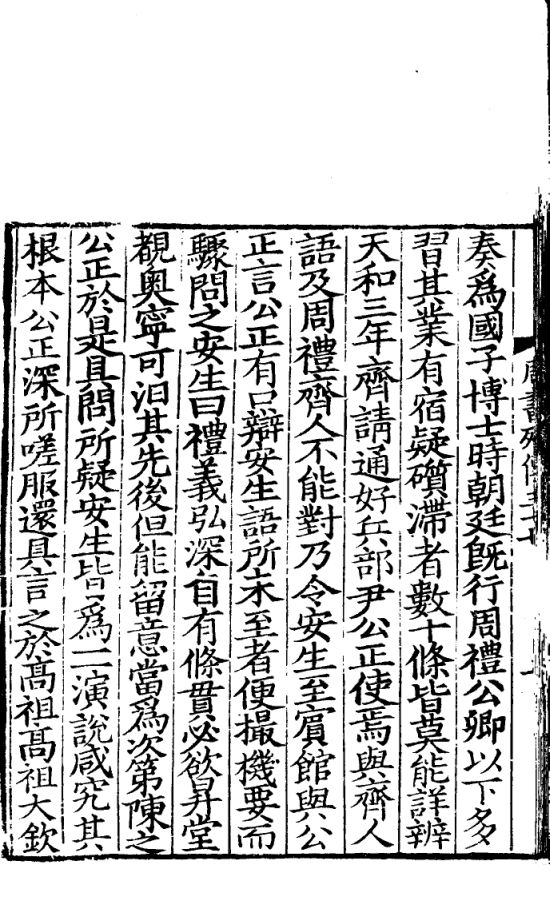 奏爲國子博士時朝廷既行周禮公卿以下多
習其業有宿疑礩滯者數十條皆莫能詳辨
天和三年齊請通好兵部尹公正使焉與齊人
語及周禮齊人不能對乃令安生至賓館與公
正言公正有口辯安生語所未至者便撮機要而
驟問之安生曰禮義弘深自有條貫必欲昇堂
覩奥寧可汩其先後但能留意當爲次第陳之
公正於是具問所疑安生皆爲一一演說咸究其
根本公正深所嗟服還具言之於高祖高祖大欽